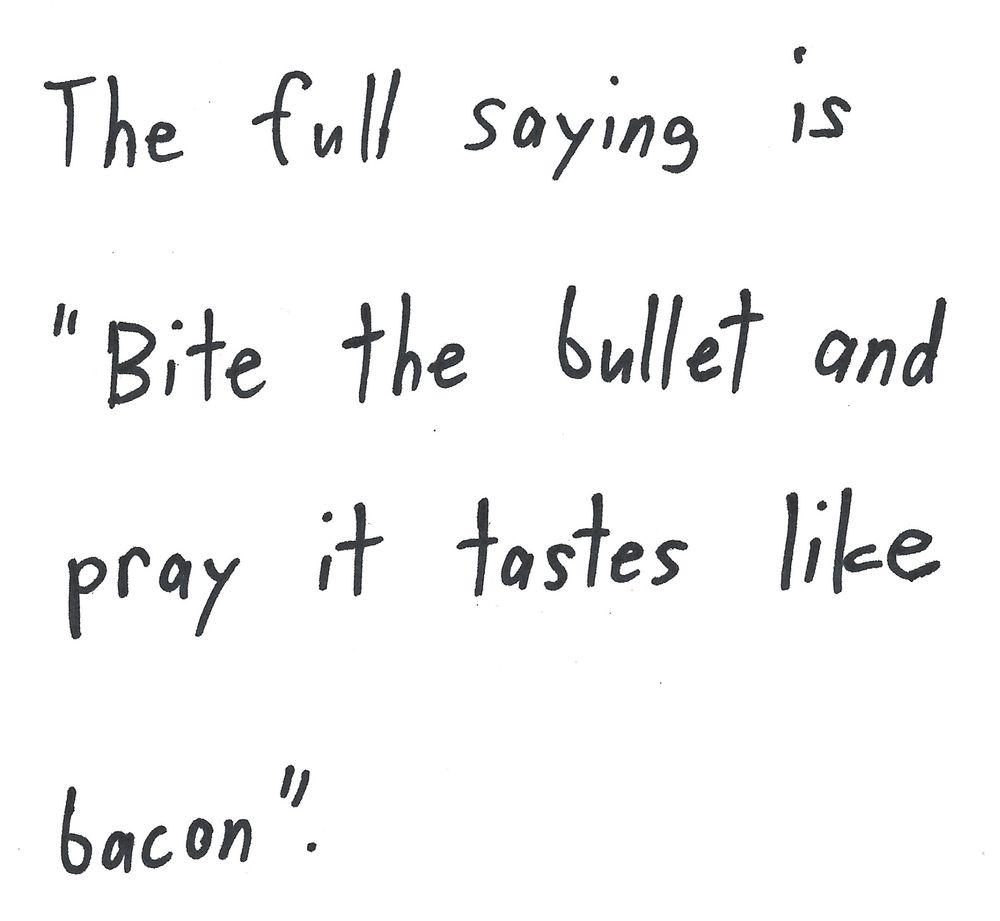 The full saying is
"Bite the bullet and
pray it tastes like
bacon".